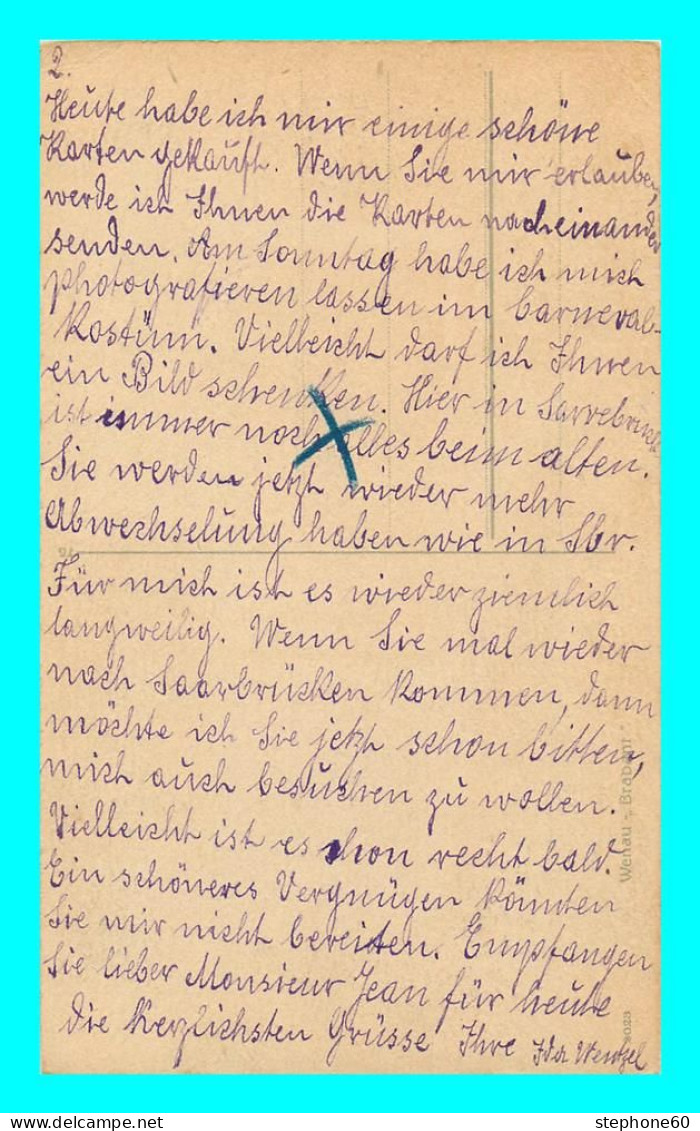 2.
Heute habe ich mir einige schöne
Karten gekauft. Wenn Sie mir erlauben,
werde ich Ihnen die Karten nacheinander
senden. Am Sonntag habe ich mich
photografieren lassen im Carneval-
Kostüm. Vielleicht darf ich Ihnen
ein Bild schenken. Hier in
ist immer noch alles beim alten.
Sie werden jetzt wieder mehr
Abwechselung haben wie in Sbr.
Für mich ist es wieder ziemlich
langweilig. Wenn Sie mal wieder
nach Saarbrücken kommen, dann
möchte ich Sie jetzt schon bitten,
mich auch besuchen zu wollen.
Vielleicht ist es schon recht bald.
Ein schöneres Vergnügen könnten
Sie mir nicht bereiten. Empfangen
Sie lieber Monsieur Jean für heute
die herzlichsten Grüsse Ihre Ida Wentzel
Wenau - Brabant
stephone60